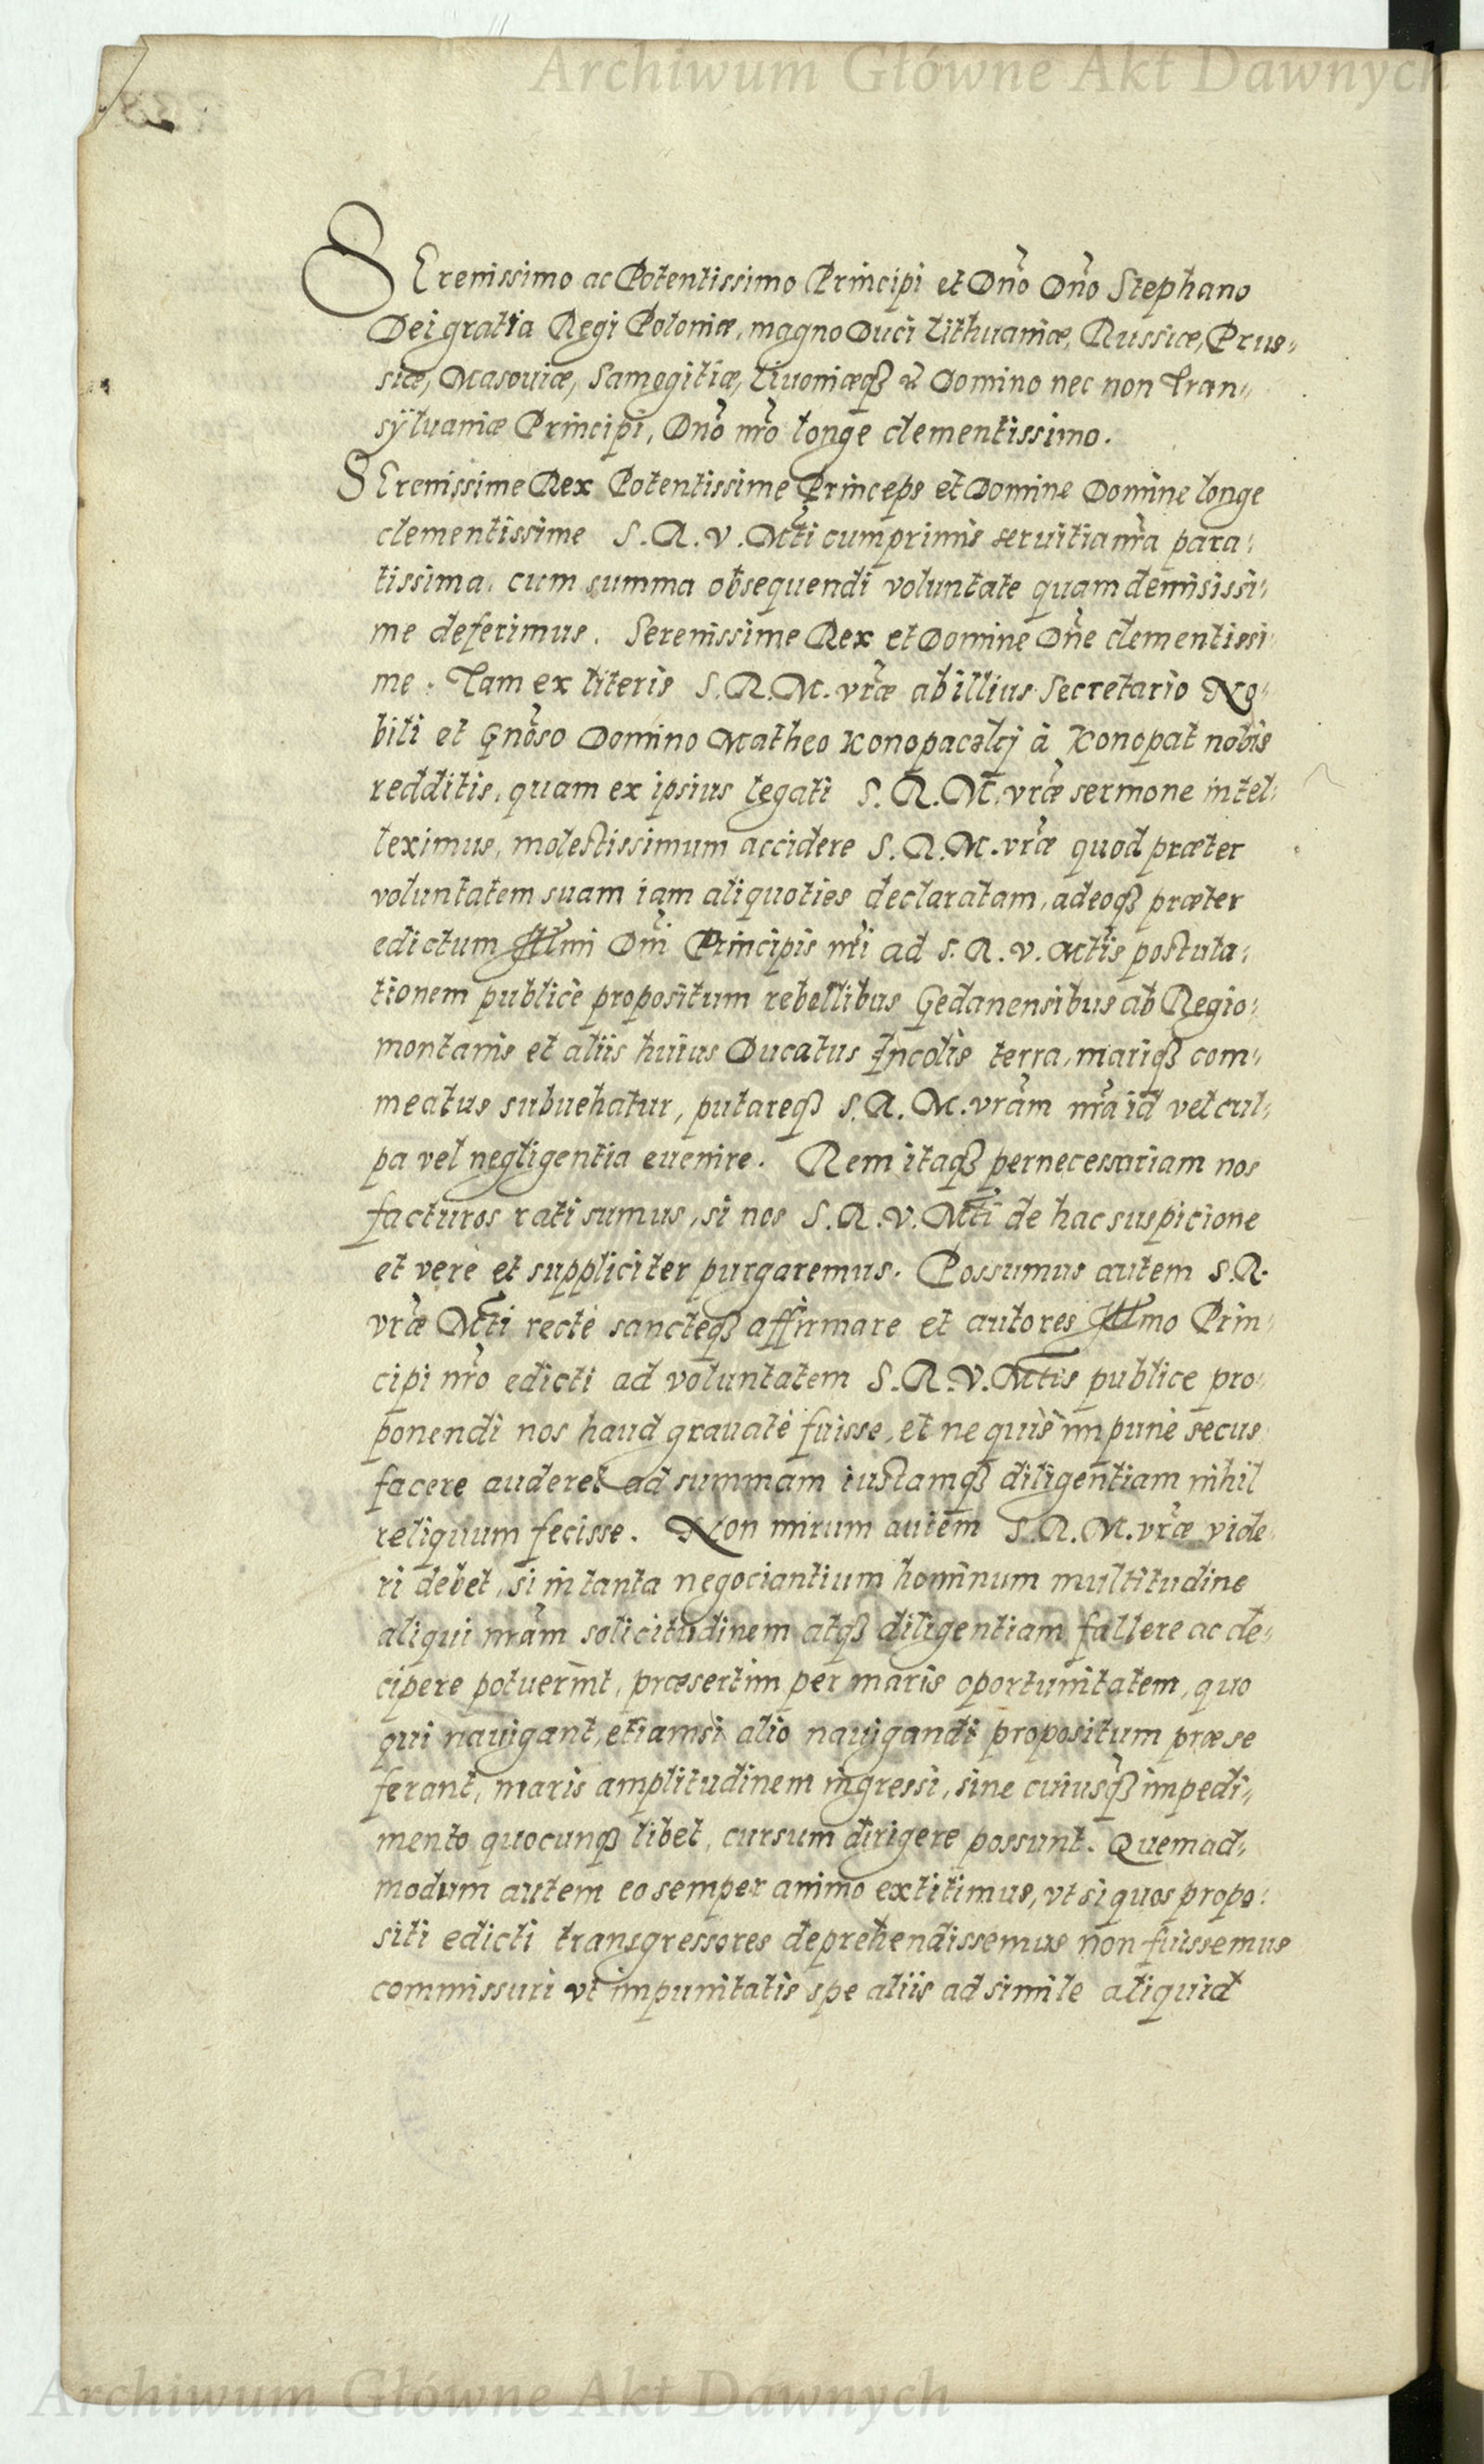 Archiwum Główne Akt Dawnych
SErenissimo ac Potentissimo Principi et Dn̄o Dn̄o Stephano
Dei gratia Regi Poloniæ, magno Duci Lithuaniæ, Russiæ, Prus„
siæ, Masouiæ, Samogitiæ, Liuoniæqȝ Domino nec non Tran„
sÿluaniæ Principi, Dn̄o nr̄o longe clementissimo.
SErenissime Rex Potentissime Princeps et Domine Domine longe
clementissime S.R.V. Mt̄i cumprimis seruitia nr̄a para„
tissima, cum summa obsequendi voluntate quam demississi„
me deferimus. Serenissime Rex et Domine Dn̄e clementissi„
me. Tam ex literis S.R.M. vr̄æ ab illius Secretario No„
bili et Gn̄oso Domino Matheo Konopaczkj à Konopat nobis
redditis, quam ex ipsius legati S.R.M. vr̄æ sermone intel„
leximus, molestissimum accidere S.R.M. vr̄æ quod præter
voluntatem suam iam aliquoties declaratam, adeoqȝ præter
edictum Illmi Dn̄i Principis nr̄i ad S.R.V. Mt̄is postula„
tionem publicè propositum rebellibus Gedanensibus ab Regio„
montanis et aliis huius Ducatus Incolis terra, mariqȝ com„
meatus subuehatur, putareqȝ S.R.M. vr̄am nr̄a id vel cul„
pa vel negligentia euenire. Rem itaqȝ pernecessariam nos
facturos rati sumus, si nos S.R.V. Mt̄i de hac suspicione
et verè et suppliciter purgaremus. Possumus autem S.R.
vr̄æ Mt̄i rectè sanctèqȝ affirmare et autores Illmo Prin„
cipi nr̄o edicti ad voluntatem S.R.V. Mt̄is publice pro„
ponendi nos haud grauatè fuisse, et ne quis impunè secus
facere auderet ad summam iustamqȝ diligentiam nihil
reliquum fecisse. Non mirum autem S.R.M. vr̄æ vide„
ri debet, si in tanta negociantium hominum multitudine
aliqui nr̄am solicitudinem atqȝ diligentiam fallere ac de„
cipere potuerint, præsertim per maris oportunitatem, quo
qui nauigant, etiamsi alio nauigandi propositum præ se
ferant, maris amplitudinem ingressi, sine cuiusqȝ impedi„
mento quocunqȝ libet, cursum dirigere possunt. Quemad„
modum autem eo semper animo extitimus, vt si quos propo„
siti edicti transgressores deprehendissemus non fuissemus
commissuri vt impunitatis spe aliis ad simile aliquid
Archiwum Główne Akt Dawnych